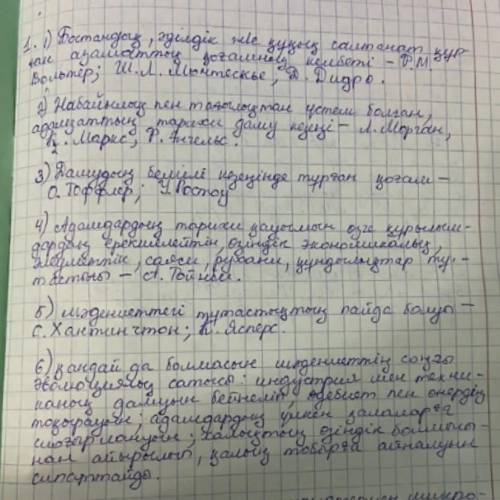 1. 1) Бостандық, әділдік және құқық салтанат құр-
ған азаматтық қоғамның келбеті – Ф.М.
Вольтер; Ш.Л. Монтескье; Д. Дидро.
2) Жабайылық пен тағылықтан үстем болған,
адамзаттың тарихи даму кезеңі – Л. Морган,
К. Маркс, Ф. Энгельс.
3) Дамудың белгілі кезеңінде тұрған қоғам –
О. Тоффлер; У. Ростоу
4) Адамдардың тарихи қауымын өзге құрылым-
дардан ерекшелейтін өзіндік экономикалық,
мәдениеттік, саяси, рухани, құндылықтар тұ-
тастығы – А. Тойнби.
5) мәдениеттегі тұтастықтың пайда болуы –
С. Хантингтон; К. Ясперс.
6) қандай да болмасын мәдениеттің соңғы
эволюциялық сатысы: индустрия мен техни-
каның дамуын бейнелі, әдебиет пен өнердің
тоқырауын; адамдардың үлкен қалаларға
шоғырлануын; халықтың өзіндік болмысы-
нан айырылып, қалың тобырға айналуын
сипаттайды.